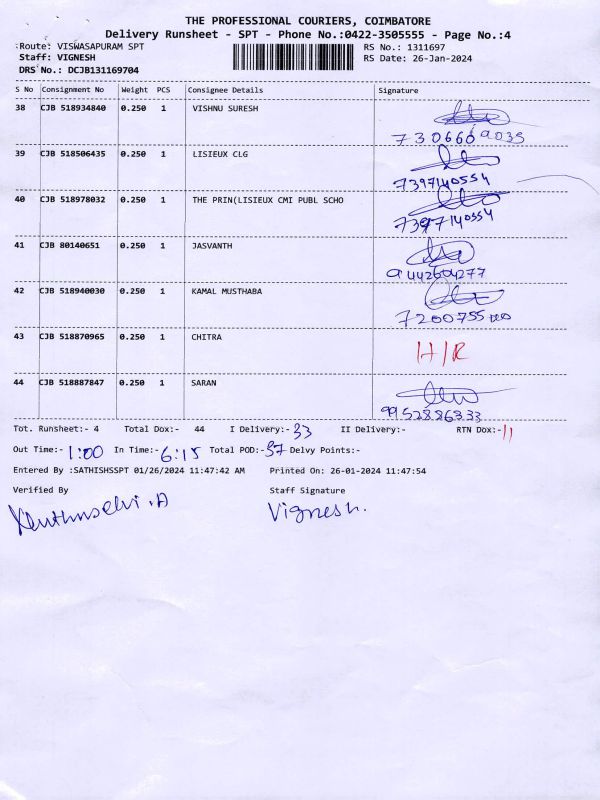 THE PROFESSIONAL COURIERS, COIMBATORE
Delivery Runsheet - SPT - Phone No.:0422-3505555 - Page No.:4
Route: VISWASAPURAM SPT RS No.: 1311697
Staff: VIGNESH RS Date: 26-Jan-2024
DRS No.: DCJB131169704
S No Consignment No Weight PCS Consignee Details Signature
38 CJB 518934840 0.250 1 VISHNU SURESH
7306669035
39 CJB 518506435 0.250 1 LISIEUX CLG
7397140554
40 CJB 518978032 0.250 1 THE PRIN(LISIEUX CMI PUBL SCHO
7397140554
41 CJB 80140651 0.250 1 JASVANTH
9442604277
42 CJB 518940030 0.250 1 KAMAL MUSTHABA
7200755
43 CJB 518870965 0.250 1 CHITRA H/R
44 CJB 518887847 0.250 1 SARAN
9952886333
Tot. Runsheet:- 4 Total Dox:- 44 I Delivery:- 33 II Delivery:- RTN Dox:- 11
Out Time:- 1:00 In Time:- 6:15 Total POD:- 37 Delvy Points:-
Entered By :SATHISHSSPT 01/26/2024 11:47:42 AM Printed On: 26-01-2024 11:47:54
Verified By Staff Signature
Vignesh.